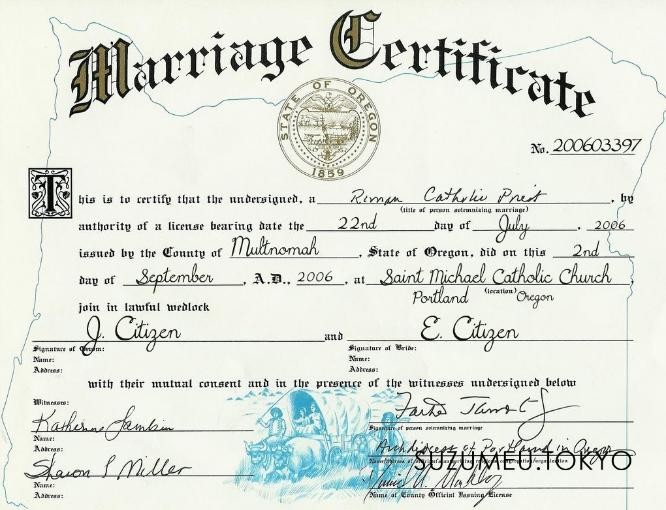 Marriage Certificate
STATE OF OREGON
1859
No. 200603397
This is to certify that the undersigned, a Roman Catholic Priest, by
(title of person solemnizing marriage)
authority of a license bearing date the 22nd day of July, 2006
issued by the County of Multnomah, State of Oregon, did on this 2nd
day of September, A.D., 2006, at Saint Michael Catholic Church
Portland (location) Oregon
join in lawful wedlock
J. Citizen and E. Citizen
Signature of Groom: Signature of Bride:
Name: Name:
Address: Address:
with their mutual consent and in the presence of the witnesses undersigned below
Witnesses:
Katherine
Signature of person solemnizing marriage
Name:
Address:
Archdiocese of Portland in Oregon
Sharon L Miller
SUZUMEU.TOKYO
Name: Name of County Official Issuing License
Address: